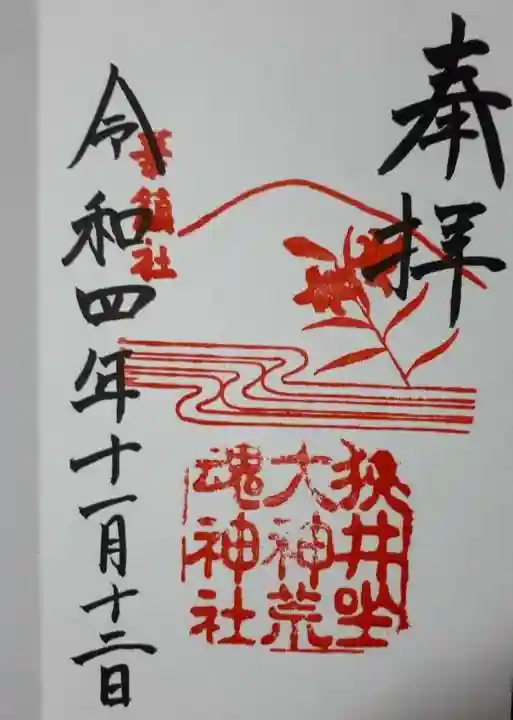 奉拝
華鎮社
狭井坐
大神荒
魂神社
令和四年十一月十二日